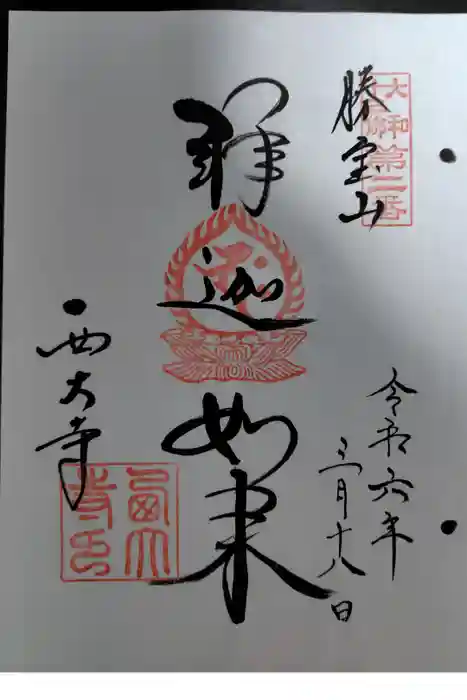 大和
第二番
勝宝山
令和六年
三月十八日
釋迦如来
西大寺
西大寺印